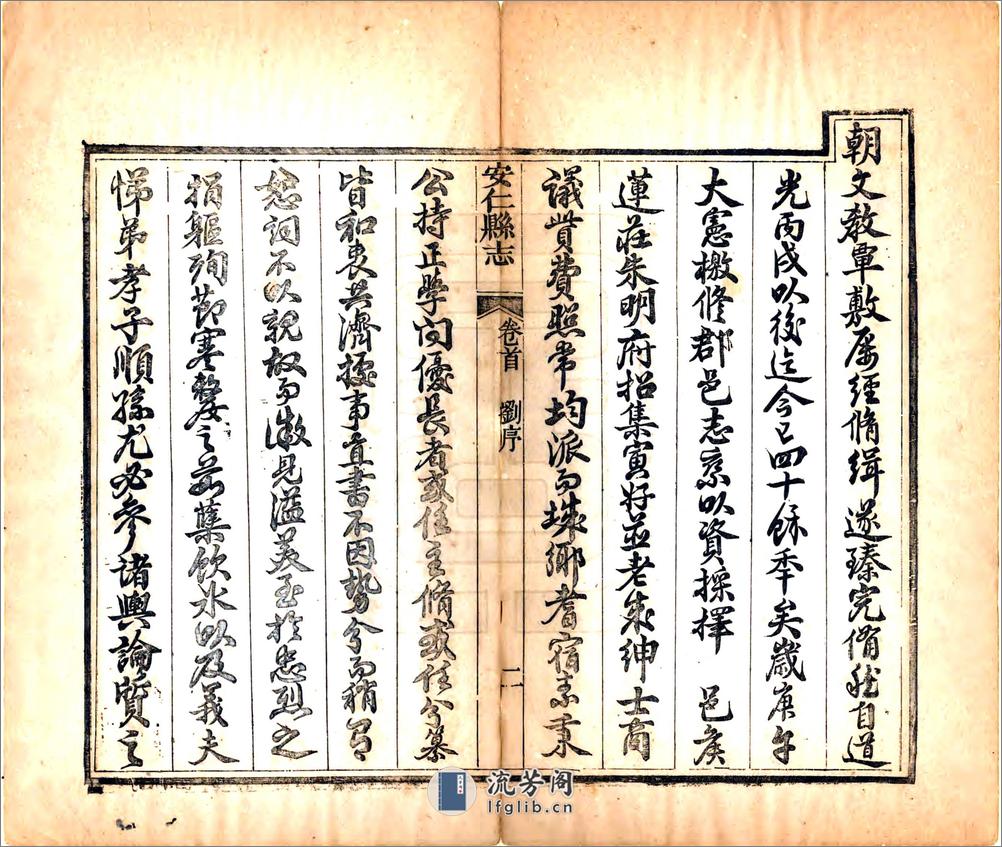 朝文敎覃敷屢經脩緝遂臻完備然自道
光丙戌以後迄今已四十餘年矣歲庚午
大憲檄修郡邑志乘以資採擇 邑侯
蓮莊朱明府招集寅好並老成紳士商
議貲費照常均派而城鄉耆宿素秉
安仁縣志 卷首 劉序 二
公持正學問優長者或任主脩或任分纂
皆和衷共濟據事直書不因勢分而稍有
恕詞不以親故而微見溢美至於忠烈之
捐軀殉節寒嫠之茹蘗飲水以及義夫
悌弟孝子順孫尤必參諸輿論質之
流芳阁
lfglib.cn